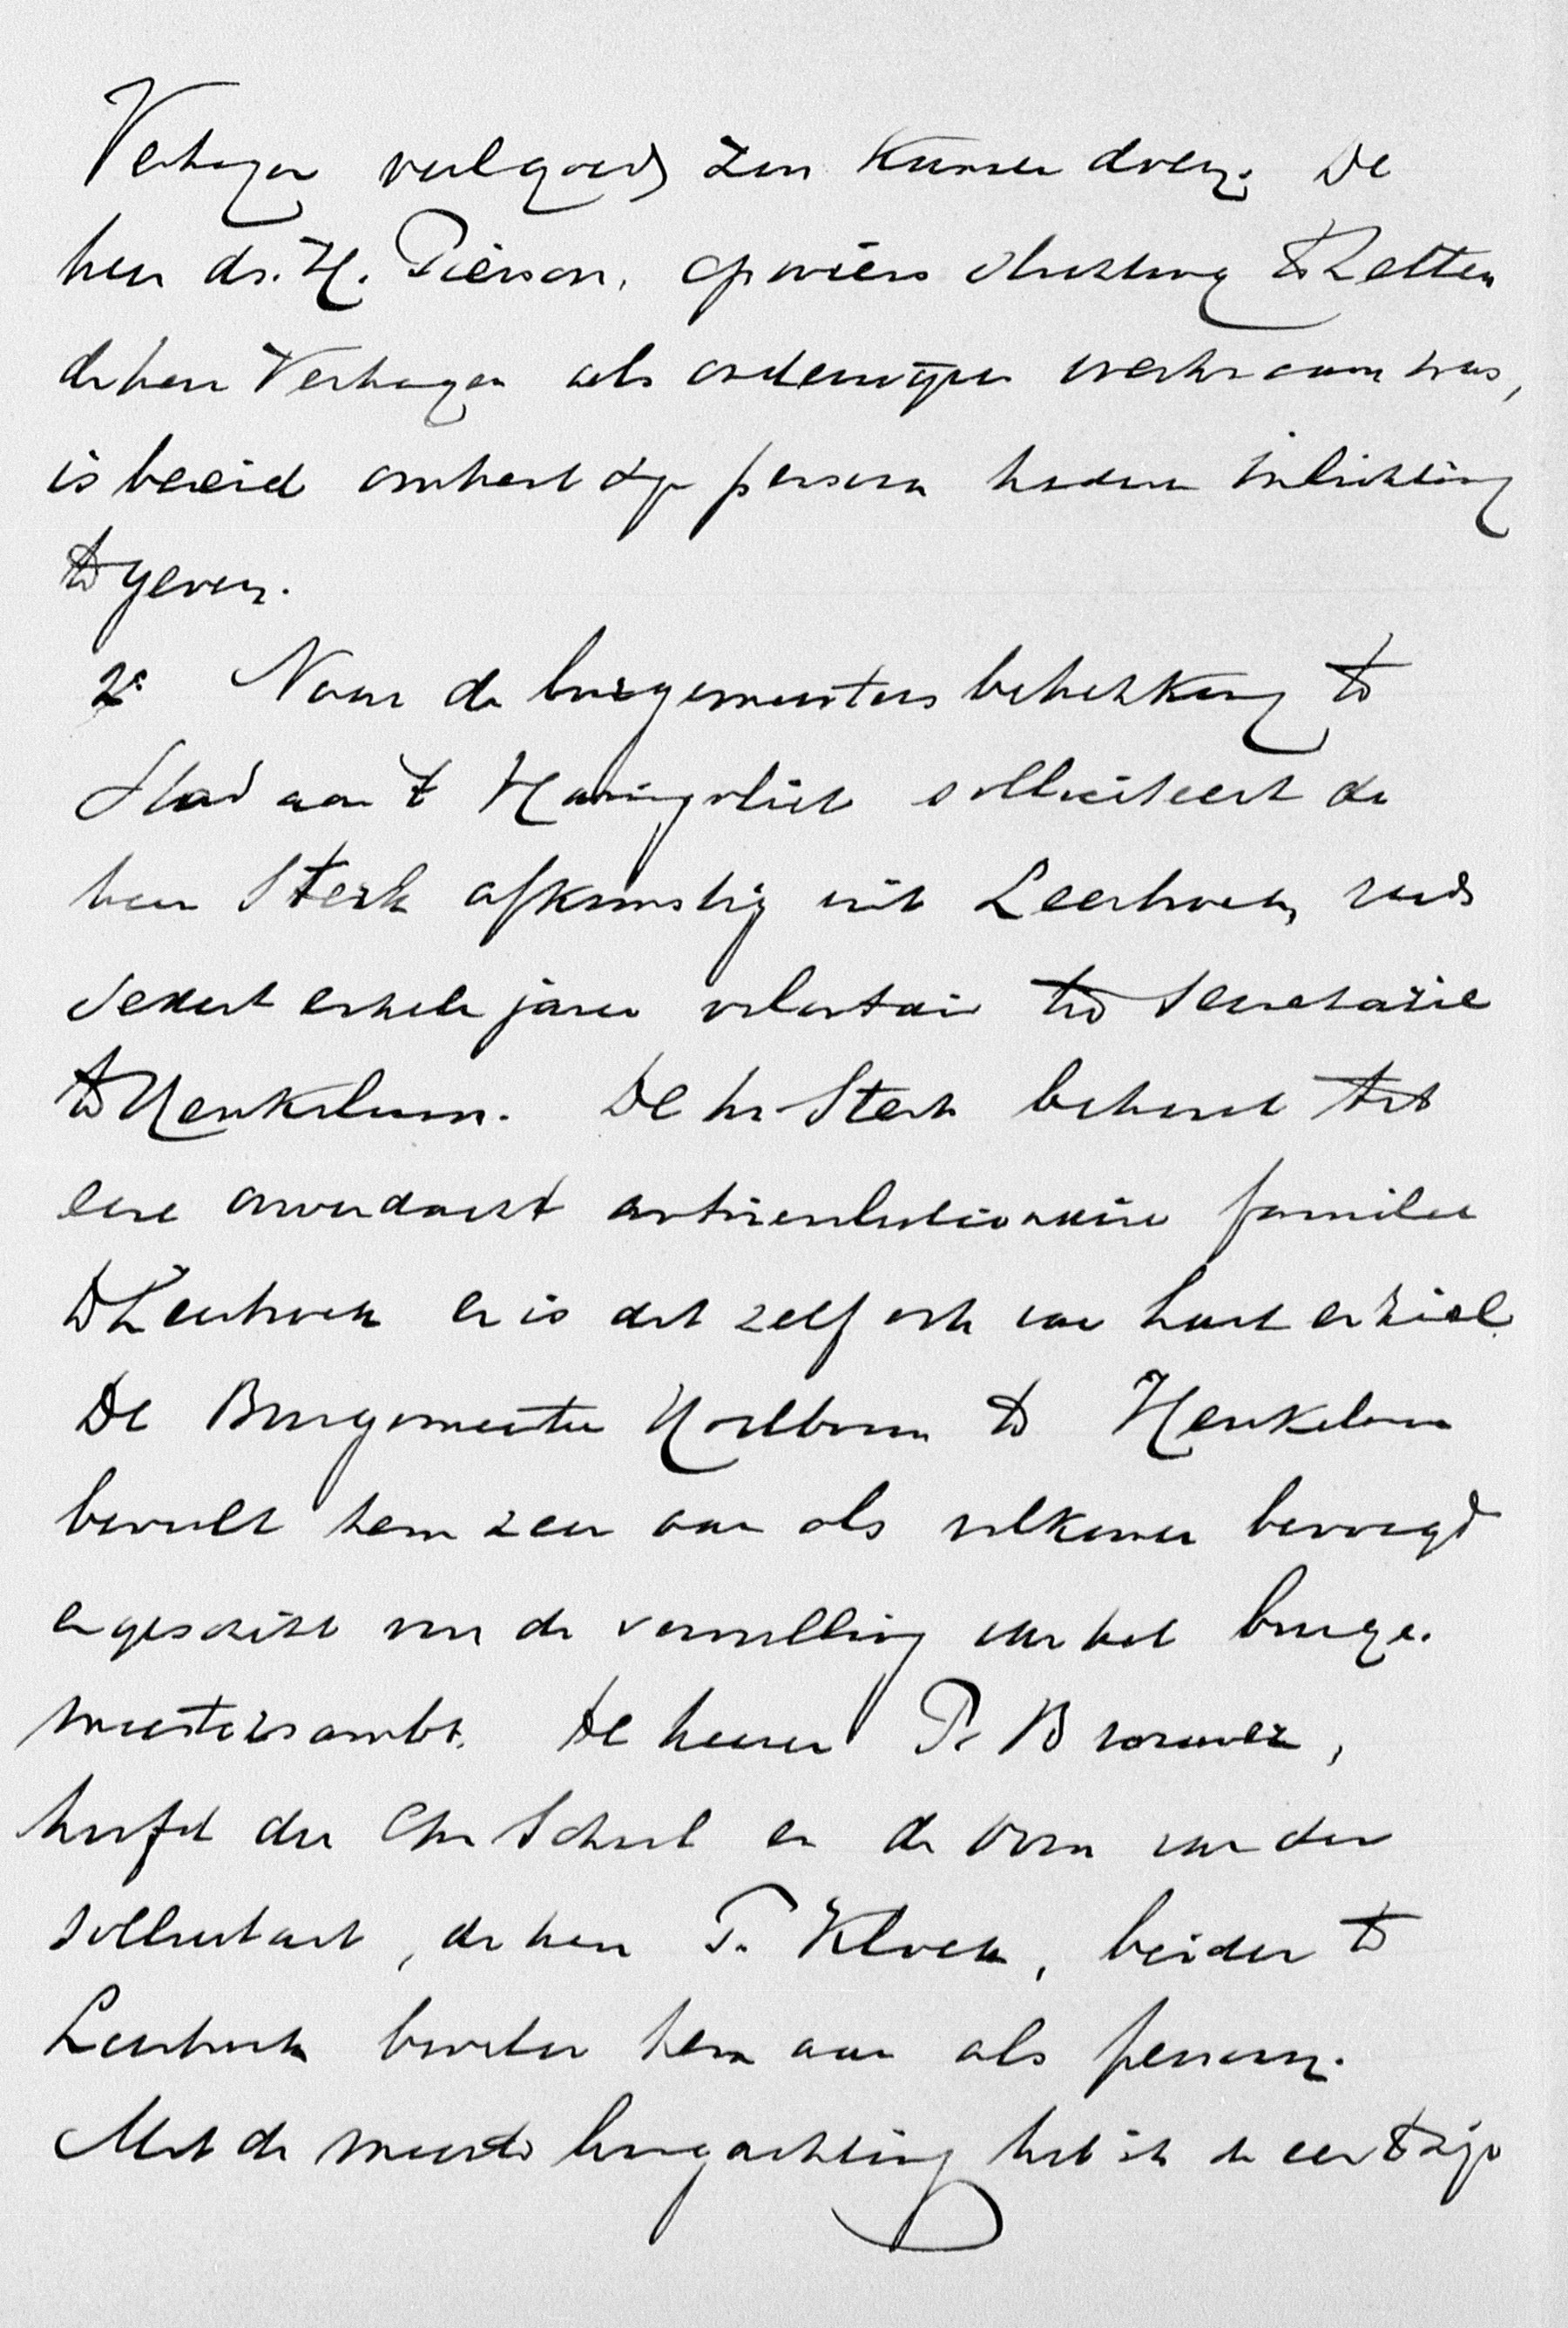 Verhagen veel goeds zou kunnen doen. De
heer ds. H. Pierson, op wiens stichting te Zetten
de heer Verhagen als onderwijzer werkzaam was,
is bereid omtrent zijn persoon nadere inlichting
te geven.
2e Naar de burgemeesters betrekking te
Stad aan 't Haringvliet solliciteert de
heer Sterk afkomstig uit Leerbroek, reeds
sedert enkele jaren volontair ter secretarie
te Heukelum. De hr Sterk behoort tot
eene overdacht antirevolutionaire familie
te Leerbroek en is dat zelf ook van hart en ziel
De Burgemeester te Heukelum
beveelt hem zeer aan als volkomen bevoegd
en geschikt voor de vervulling van het burge-
meestersambt. De heeren P. Brouwer,
hoofd der Chr School en de oom van den
sollicitant, de heer T. Kloek, beiden te
Leerbroek bevelen hem aan als persoon.
Met de meeste hoogachting heb ik de eer te zijn